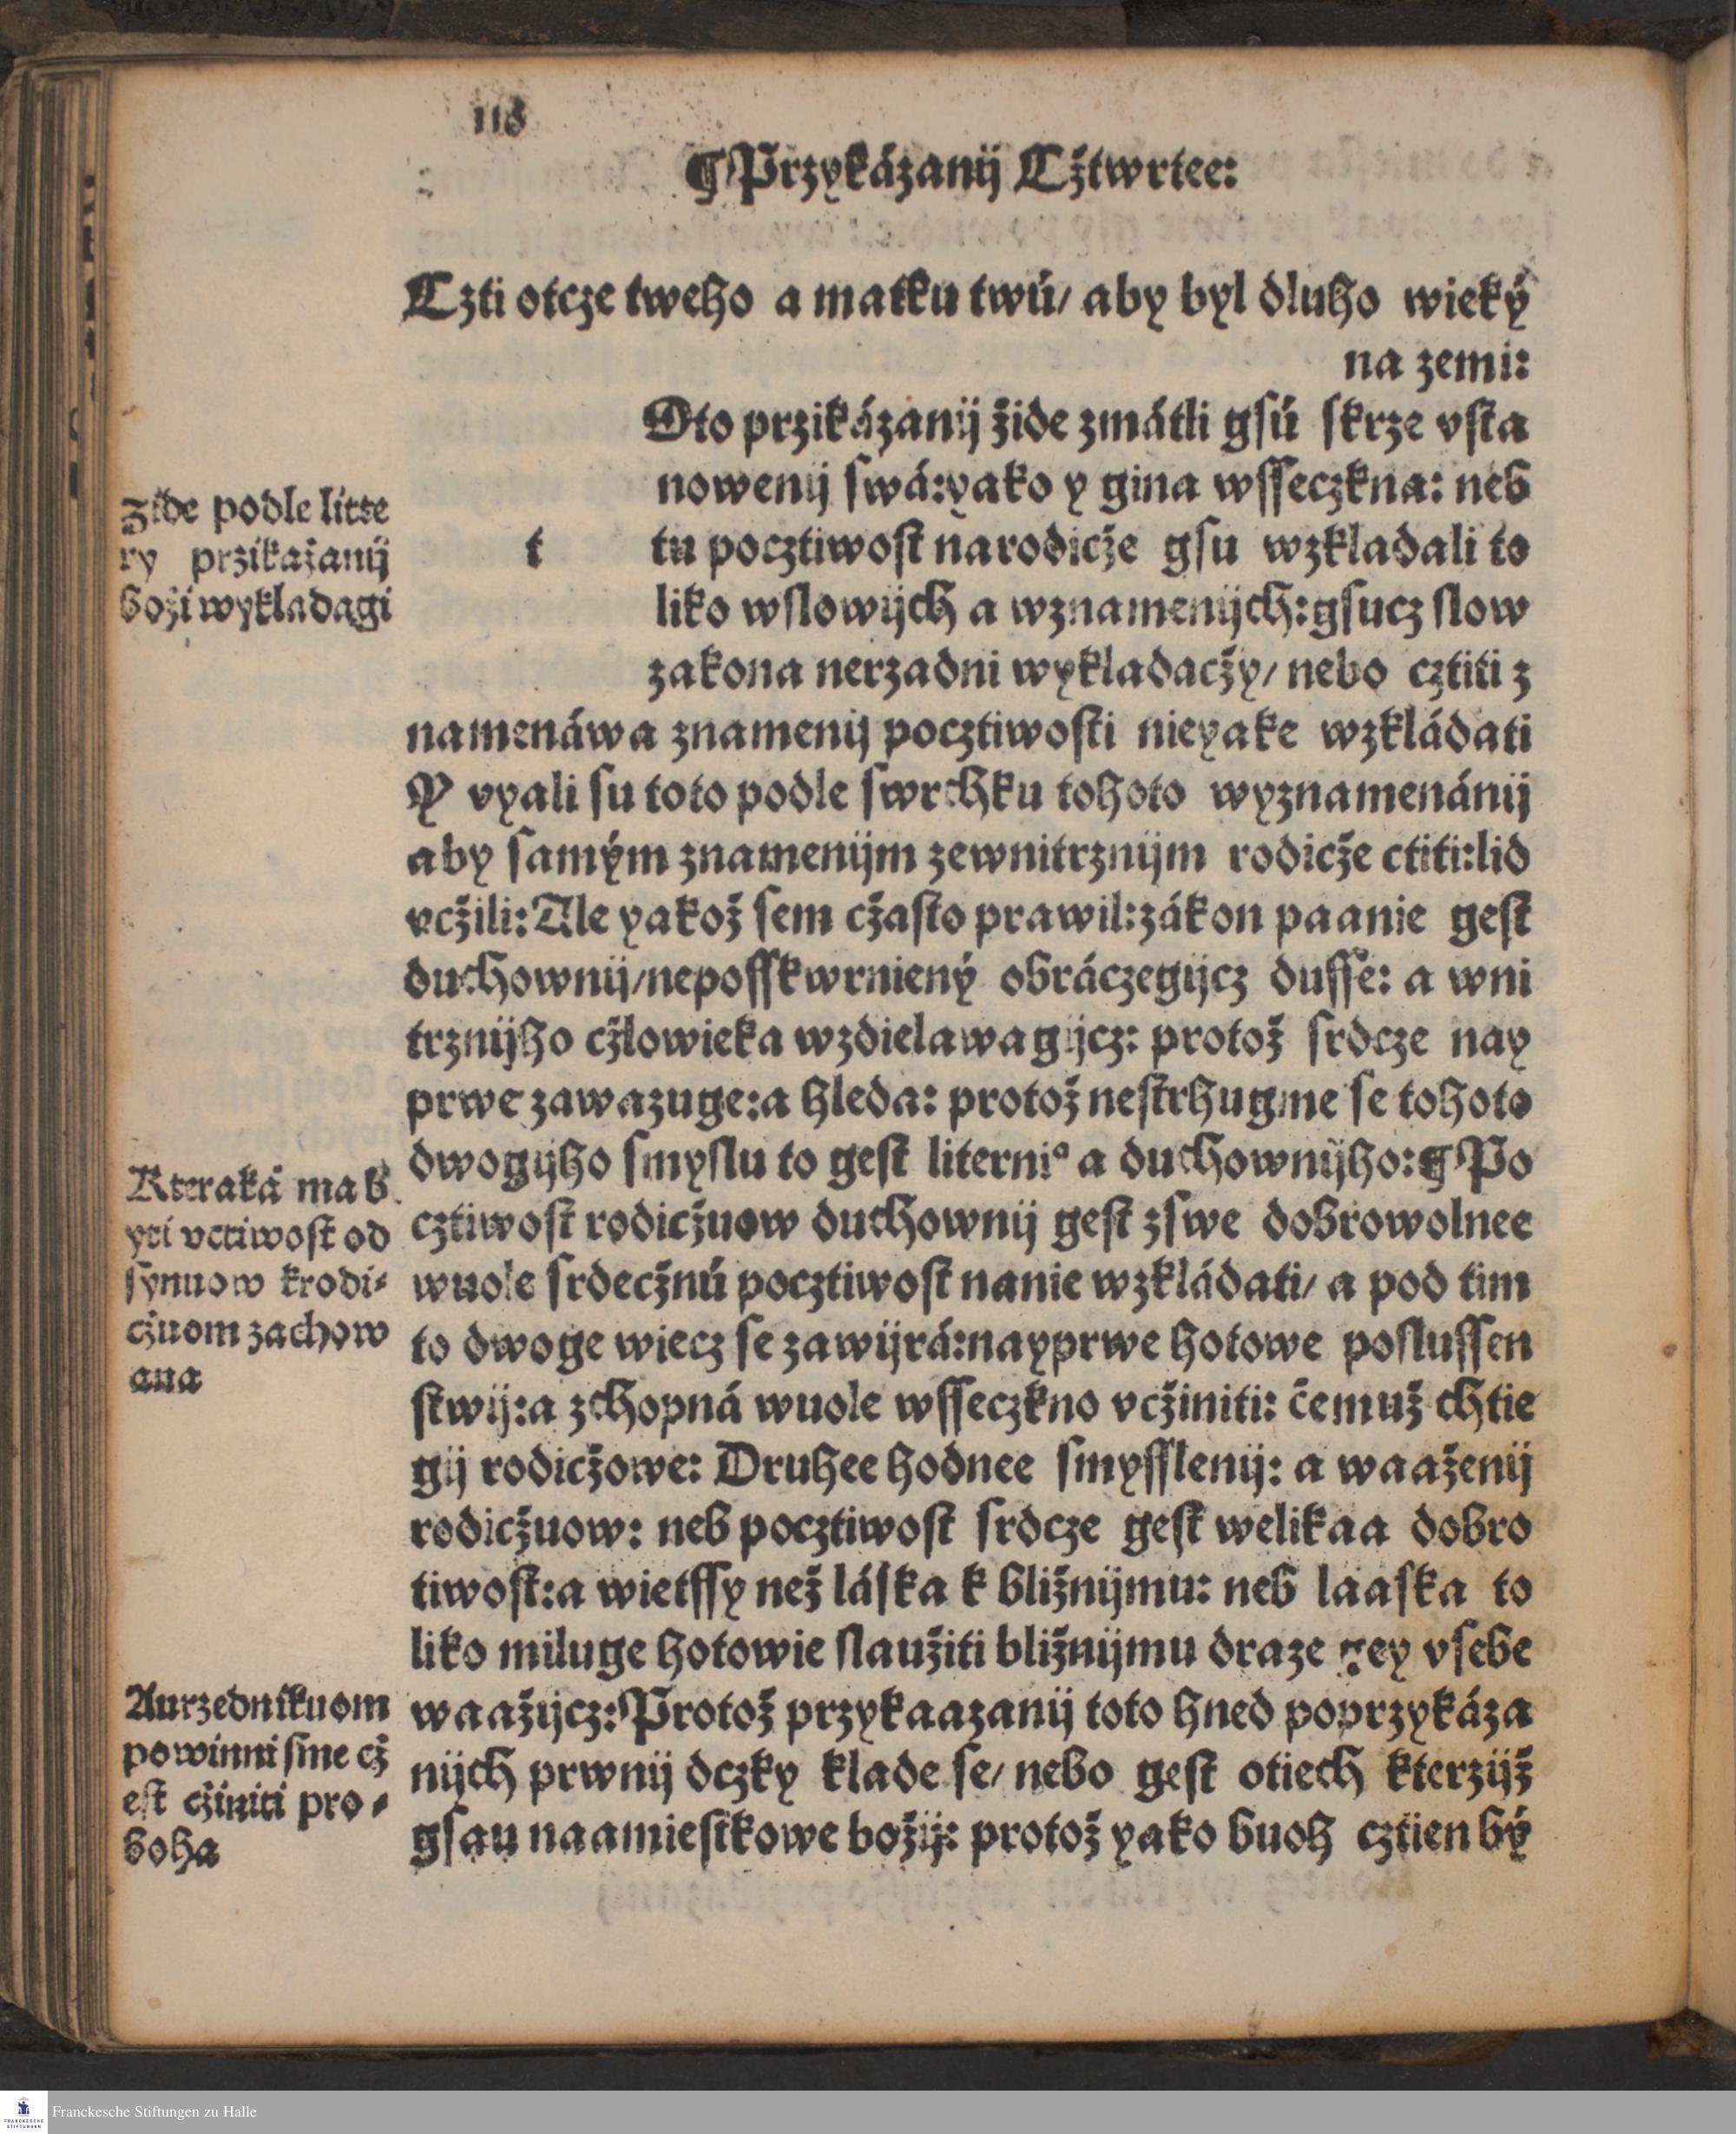 116
¶Przykázanij Cžtwrtee:
Czti otcze tweho a matku twú/ aby byl dluho wieký
na zemi:
Oto przikázanij žide zmátli gsú skrze vsta
nowenij swá:yako y gina wsseczkna: neb
t
tu pocztiwost narodicže gsu wzkladali to
liko wslowijch a wznamenijch:gsucz slow
zakona nerzadni wykladacžy/ nebo cztiti z
namenáwa znamenij pocztiwosti nieyake wzkládati
Y vyali su toto podle swrchku tohoto wyznamenánij
aby samým znamenijm zewnitrznijm rodicže ctiti:lid
vcžili:Ale yakož sem cžasto prawil:zákon paanie gest
duchownij/neposskwrniený obráczegijcz dusse: a wni
trznijho cžlowieka wzdielawagijcz: protož srdcze nay
prwe zawazuge:a hleda: protož nestrhugme se tohoto
dwogijho smyslu to gest literniº a duchownijho:¶Po
cztiwost rodicžuow duchownij gest zswe dobrowolnee
wuole srdecžnú pocztiwost nanie wzkládati/ a pod tim
to dwoge wiecz se zawijrá:nayprwe hotowe poslussen
stwij:a zchopná wuole wsseczkno vcžiniti: čemuž chtie
gij rodicžowe: Druhee hodnee smysslenij: a waaženij
rodicžuow: neb pocztiwost srdcze gest welikaa dobro
tiwost:a wietssy než láska k bližnijmu: neb laaska to
liko miluge hotowie slaužiti bližnijmu draze gey vsebe
waažijcz:Protož przykaazanij toto hned poprzykáza
nijch prwnij dczky klade se/ nebo gest otiech kterzijž
gsau naamiestkowe božij: protož yako buoh cztien bý
Zide podle litte
ry przikažanij
boži wykladagi
Kteraká ma b
yti vctiwost od
synuow krodi⸗
cžuom zachow
ana
Aurzednikuom
powinni sme cž
est cžiniti pro⸗
boha
Franckesche Stiftungen zu Halle
FRANCKESCHE
STIFTUNGEN